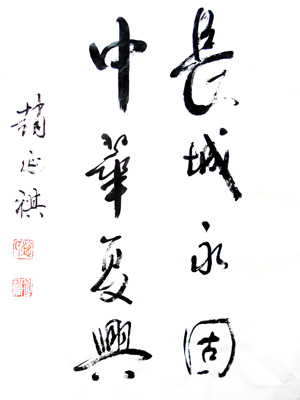 長城永固
中華复興
趙延祺